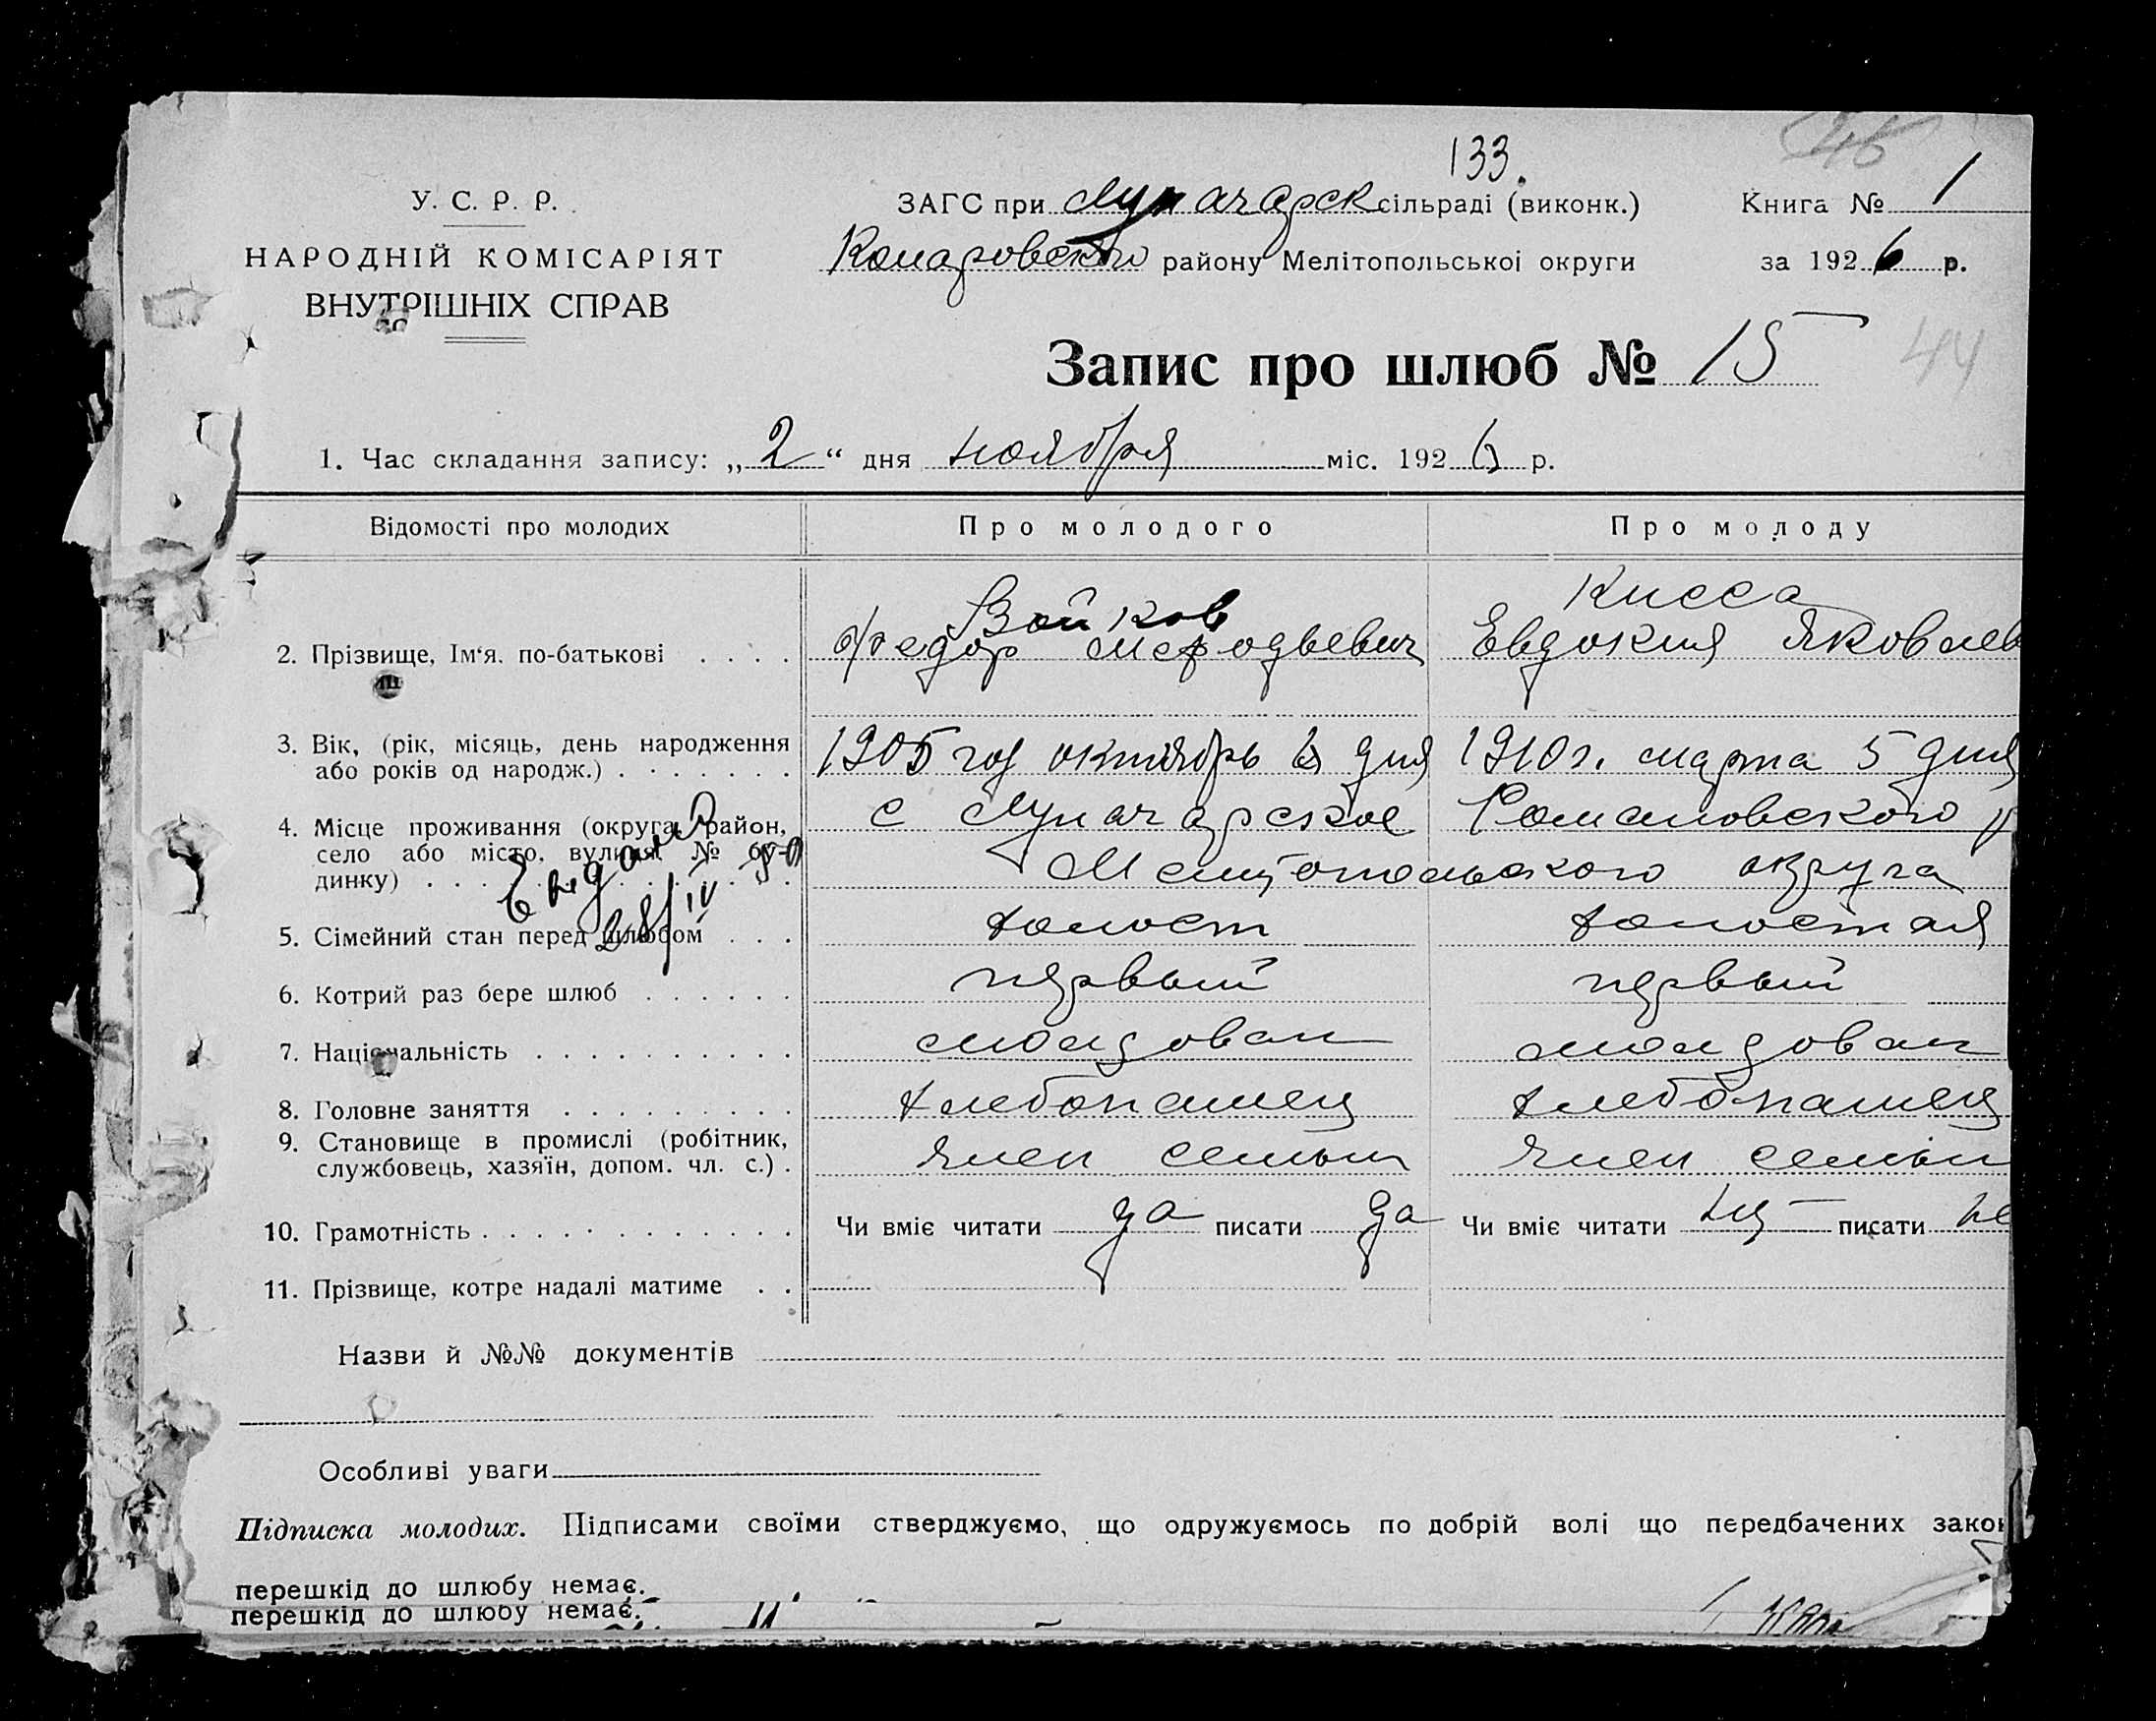 133.
46
У. С. Р. Р.
ЗАГС при Луначарск сільраді (виконк.)
Книга № 1
НАРОДНІЙ КОМІСАРІЯТ
ВНУТРІШНІХ СПРАВ
району Мелітопольської округи
за 1926 р.
Запис про шлюб № 15
44
1. Час складання запису: „2“ дня ноября міс. 1926 р.
Відомості про молодих
Про молодого
Про молоду
2. Прізвище, Ім‘я. по-батькові . . . .
Войков
Федор Мефодьевич
Кисса
Евдокия Яковлев
3. Вік, (рік, місяць, день народження
або років од народж.) . . . . . . .
1905 год октябрь дня
1910 г. марта 5 дня
4. Місце проживання (округа, район,
село або місто, вулиця, № бу-
динку) . . .
с Луначарское Романовского р
Мелитопольского округа
28/IV
5. Сімейний стан перед шлюбом . . .
холост
холостая
6. Котрий раз бере шлюб . . . . . .
первый
первый
7. Національність . . . . . . . . . .
молдован
молдован
8. Головне заняття . . . . . . . . .
хлебопашец
хлебопашец
9. Становище в промислі (робітник,
службовець, хазяїн, допом. чл. с.) .
член семьи
член семьи
10. Грамотність . . . . . . . . . . . .
Чи вміє читати да писати да
Чи вміє читати нет писати не
11. Прізвище, котре надалі матиме . .
Назви й №№ документів
Особливі уваги
Підписка молодих. Підписами своїми стверджуємо, що одружуємось по добрій волі що передбачених закон
перешкід до шлюбу немає.
перешкід до шлюбу немає.